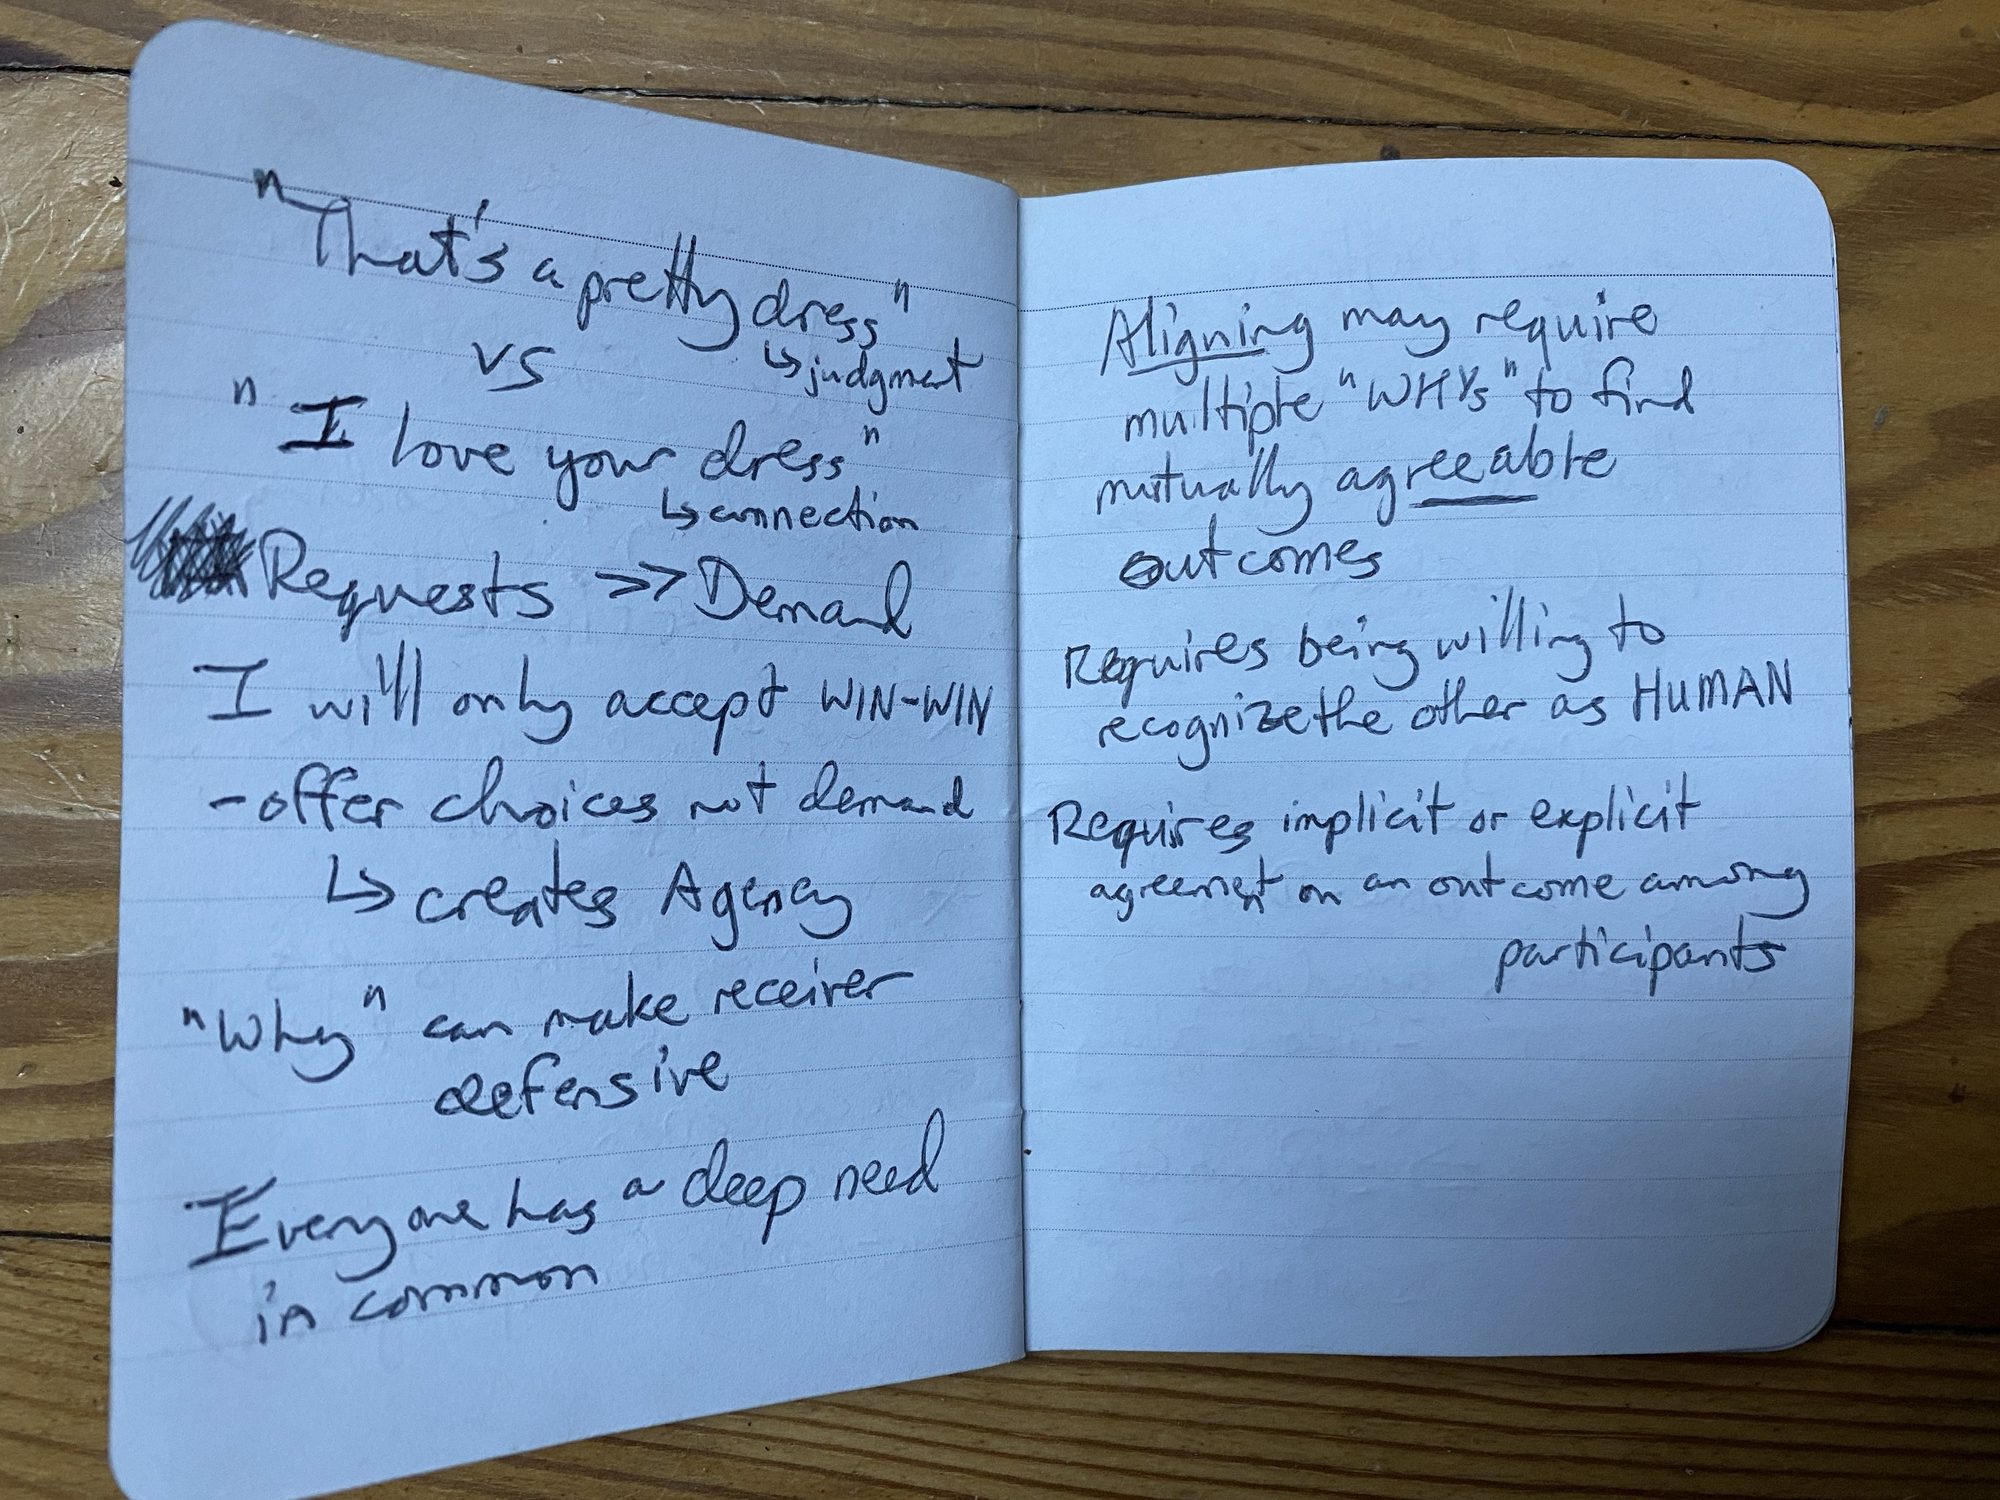 "That's a pretty dress"
↳ judgment
vs
"I love your dress"
↳ connection
Requests >> Demand
I will only accept WIN-WIN
- offer choices not demand
↳ creates Agency
"Why" can make receiver
defensive
Everyone has a deep need
in common
Aligning may require
multiple "WHYs" to find
mutually agreeable
outcomes
Requires being willing to
recognize the other as HUMAN
Requires implicit or explicit
agreement on an outcome among
participants